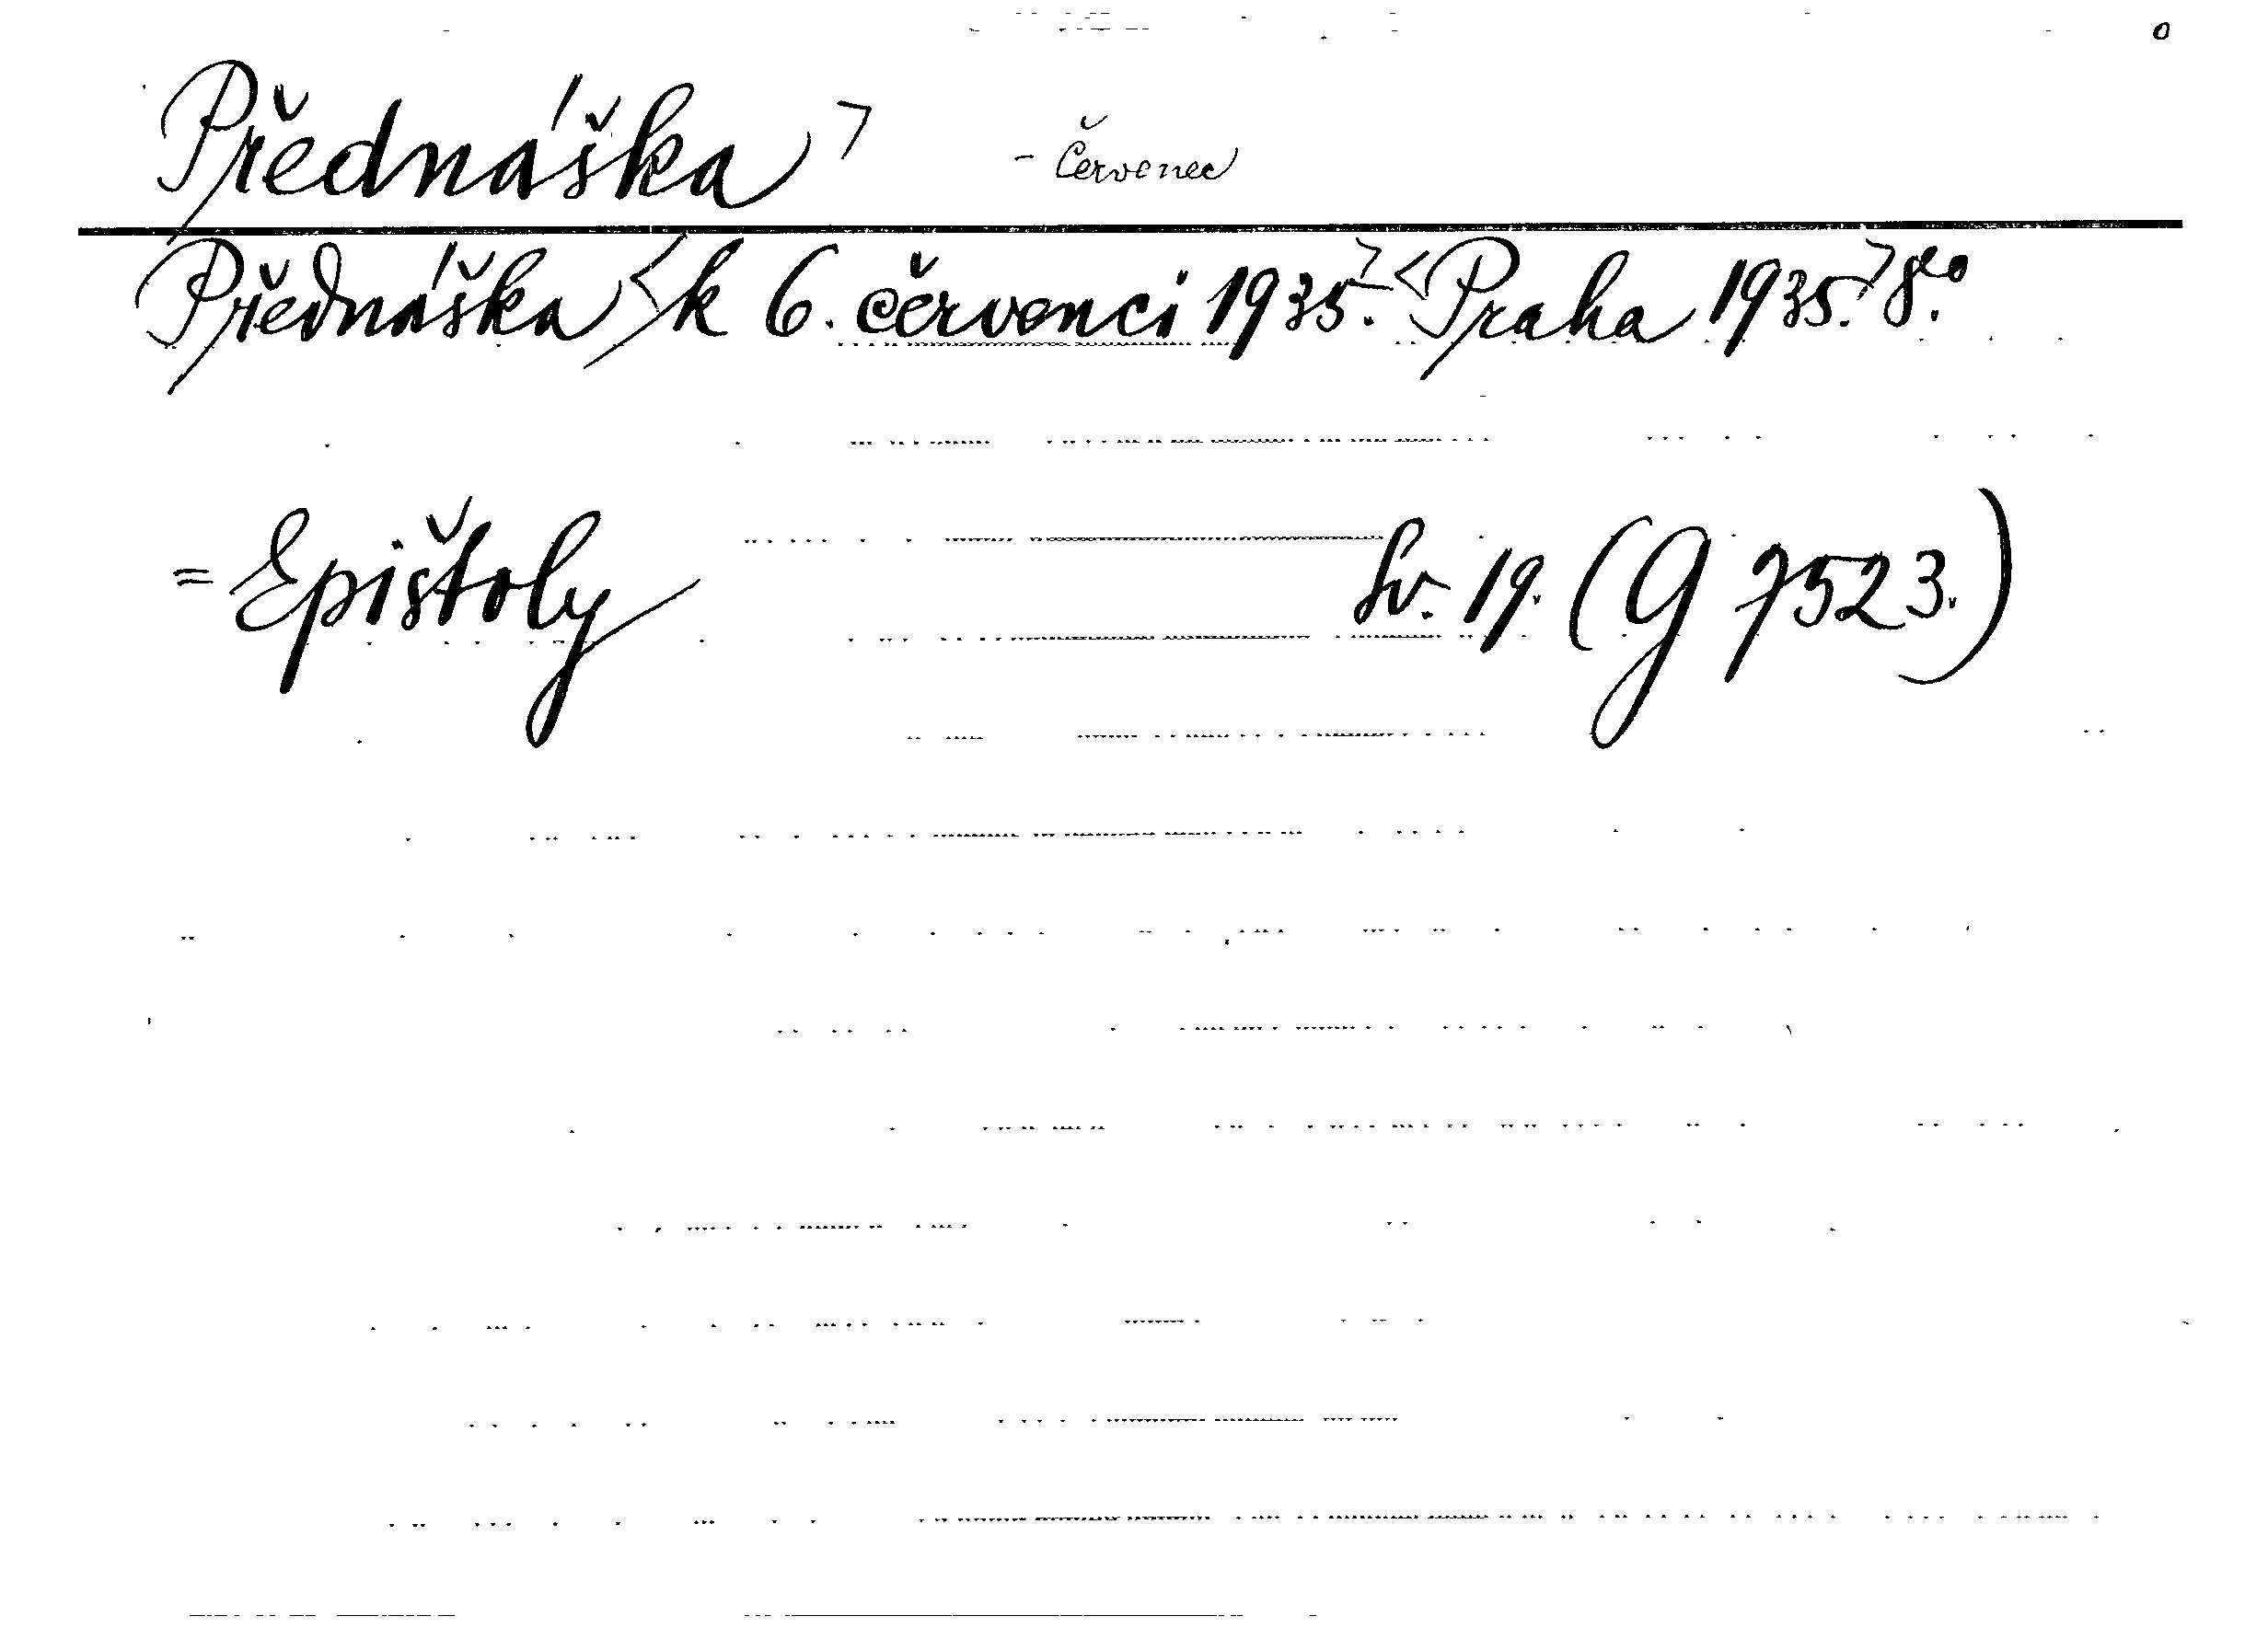 Přednáška> - Červenec
Přednáška <k 6. červenci 1935.> <Praha 1935.> 8°.
= Epištoly Sv. 19. (G 7523.)